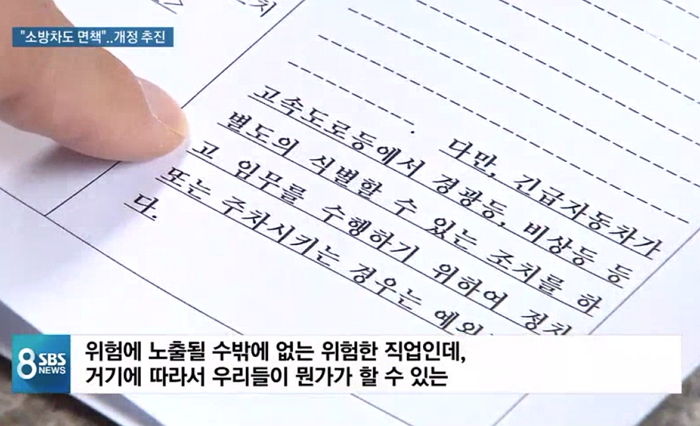 "소방차도 면책"..개정 추진
다만, 긴급자동차가
고속도로등에서 경광등, 비상등 등
별도의 식별할 수 있는 조치를 하
고 임무를 수행하기 위하여 정차
또는 주차시키는 경우는
다.
위험에 노출될 수밖에 없는 위험한 직업인데,
거기에 따라서 우리들이 뭔가가 할 수 있는
8 SBS
NEWS